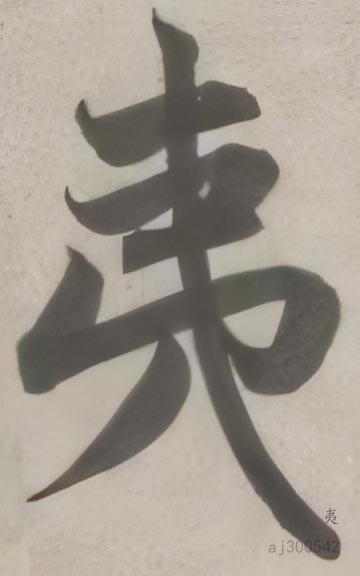 夷
夷
aj300542